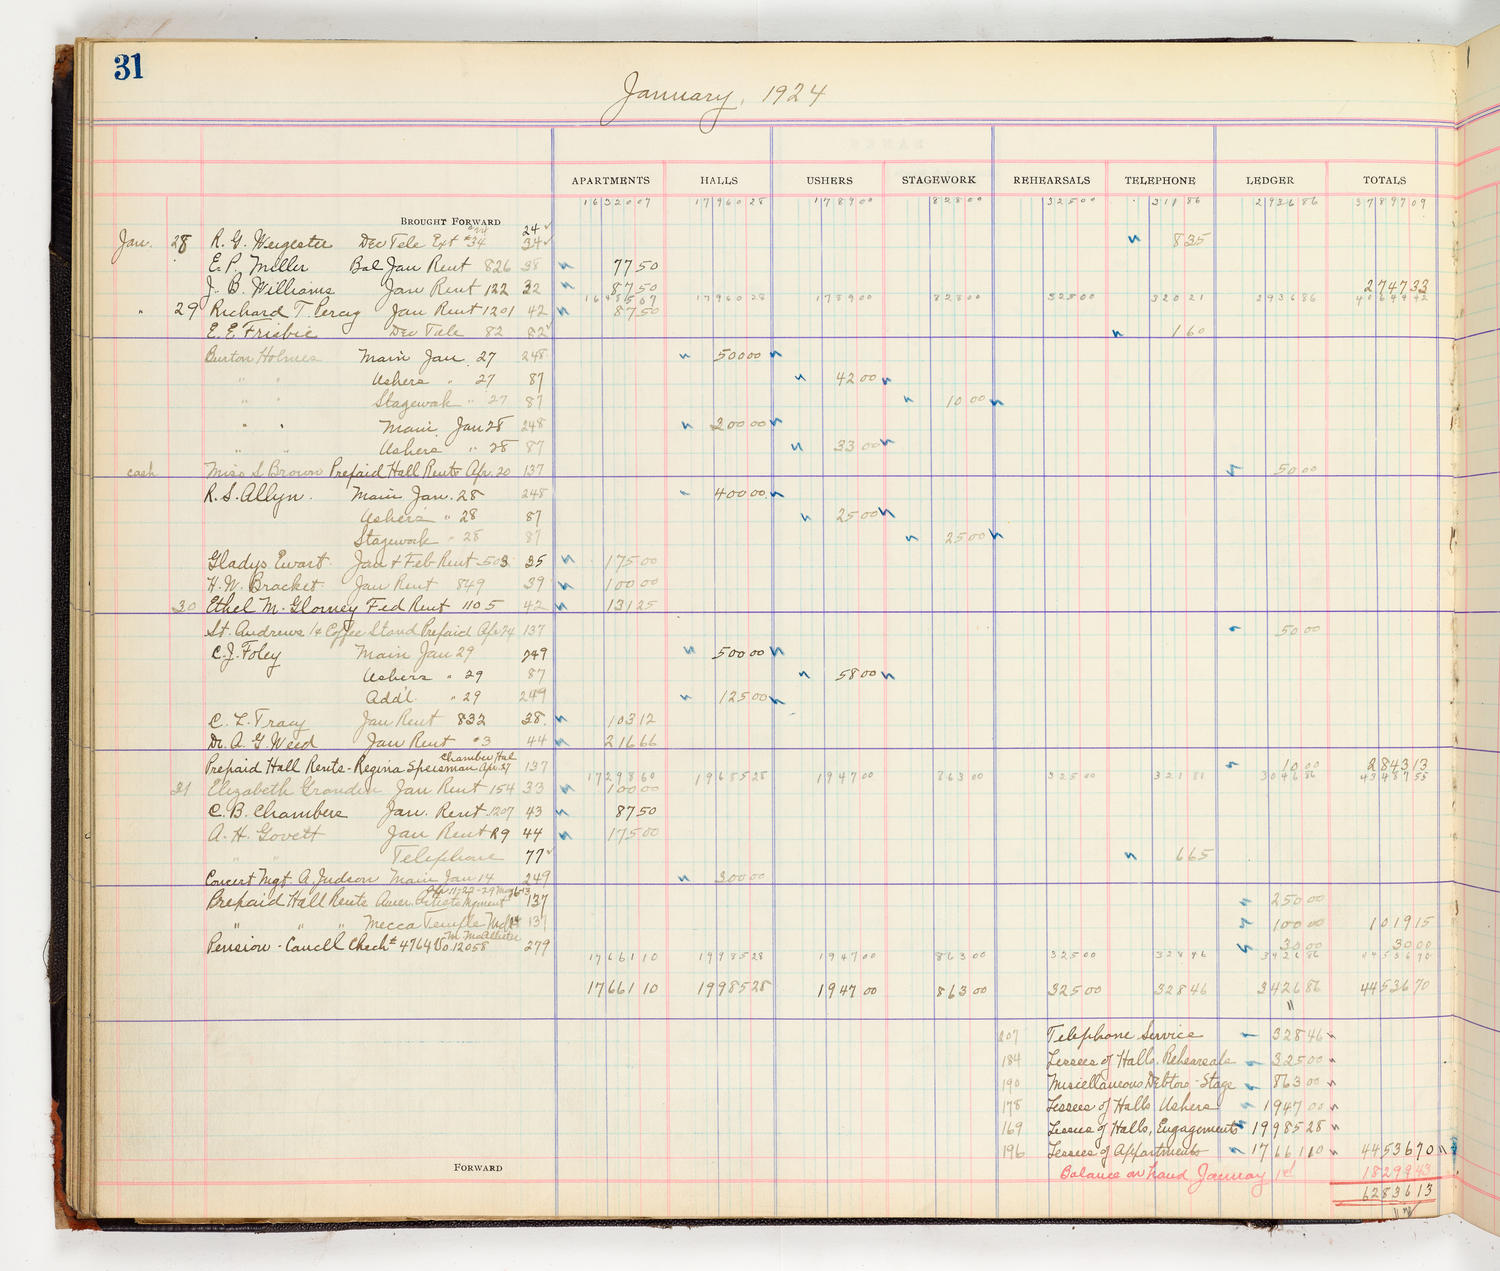 31
January, 1924
APARTMENTS HALLS USHERS STAGEWORK REHEARSALS TELEPHONE LEDGER TOTALS
1632007 1796028 178900 82800 32500 31186 293686 3789709
BROUGHT FORWARD 24
Jan. 28 R. G. Weigester Dec Tele Ext #34 34 835
E. P. Miller Bal Jan Rent 826 38 7750
J. B. Williams Jan Rent 122 32 8750 274733
1648507 1796028 178900 82800 32500 32021 293686 4064442
" 29 Richard T. Percy Jan Rent 1201 42 8750
E. E. Frisbie Dec Tele 82 82 160
Burton Holmes Main Jan. 27 248 50000
" " Ushers " 27 87 4200
" " Stagework " 27 87 1000
" " Main Jan 28 248 20000
" " Ushers " 28 87 3300
cash Miss S Brown Prepaid Hall Rents Apr. 20 137 5000
R. S. Allyn. Main Jan. 28 248 40000
Ushers " 28 87 2500
Stagework " 28 87 2500
Gladys Ewart. Jan & Feb Rent 503 35 17500
H. W. Bracket. Jan Rent 849 39 10000
30 Ethel M. Glomey Fed Rent 1105 42 13125
St. Andrews Coffee Stand Prepaid Apr 24 137 5000
C. J. Foley Main Jan 29 249 50000
Ushers " 29 87 5800
Add'l " 29 249 12500
C. L. Tracy Jan Rent 832 38. 10312
Dr. A. G. Weed Jan Rent #3 44 21666
Chamber Hal
Prepaid Hall Rents - Regina Speisman Apr. 27 137 1000 284313
1729860 1968528 194700 86300 32500 32181 304686 4348755
31 Elizabeth Granden Jan Rent 154 33 10000
C. B. Chambers Jan. Rent 1207 43 8750
A. H. Govett Jan Rent R9 44 17500
" " Telephone 77 665
Concert Mgt. A. Judson Main Jan 14 249 30000
Prepaid Hall Rents Amer. Artists Mgment 137 25000
" " " Mecca Temple 137 10000 101915
M. McAllister
Pension - Cancell Check # 4764 Vo. 12058 279 3000 3000
1766110 1998528 194700 86300 32500 32846 342686 4453670
1766110 1998528 194700 86300 32500 32846 342686 4453670
"
207 Telephone Service 32846
184 Lessees of Halls, Rehearsals 32500
190 Miscellaneous Debtors - Stage 86300
178 Lessees of Halls Ushers 194700
169 Lessees of Halls, Engagements 1998528
196 Lessees of Appartments 1766110 4453670
FORWARD
Balance on hand January 1st 1829943
6283613